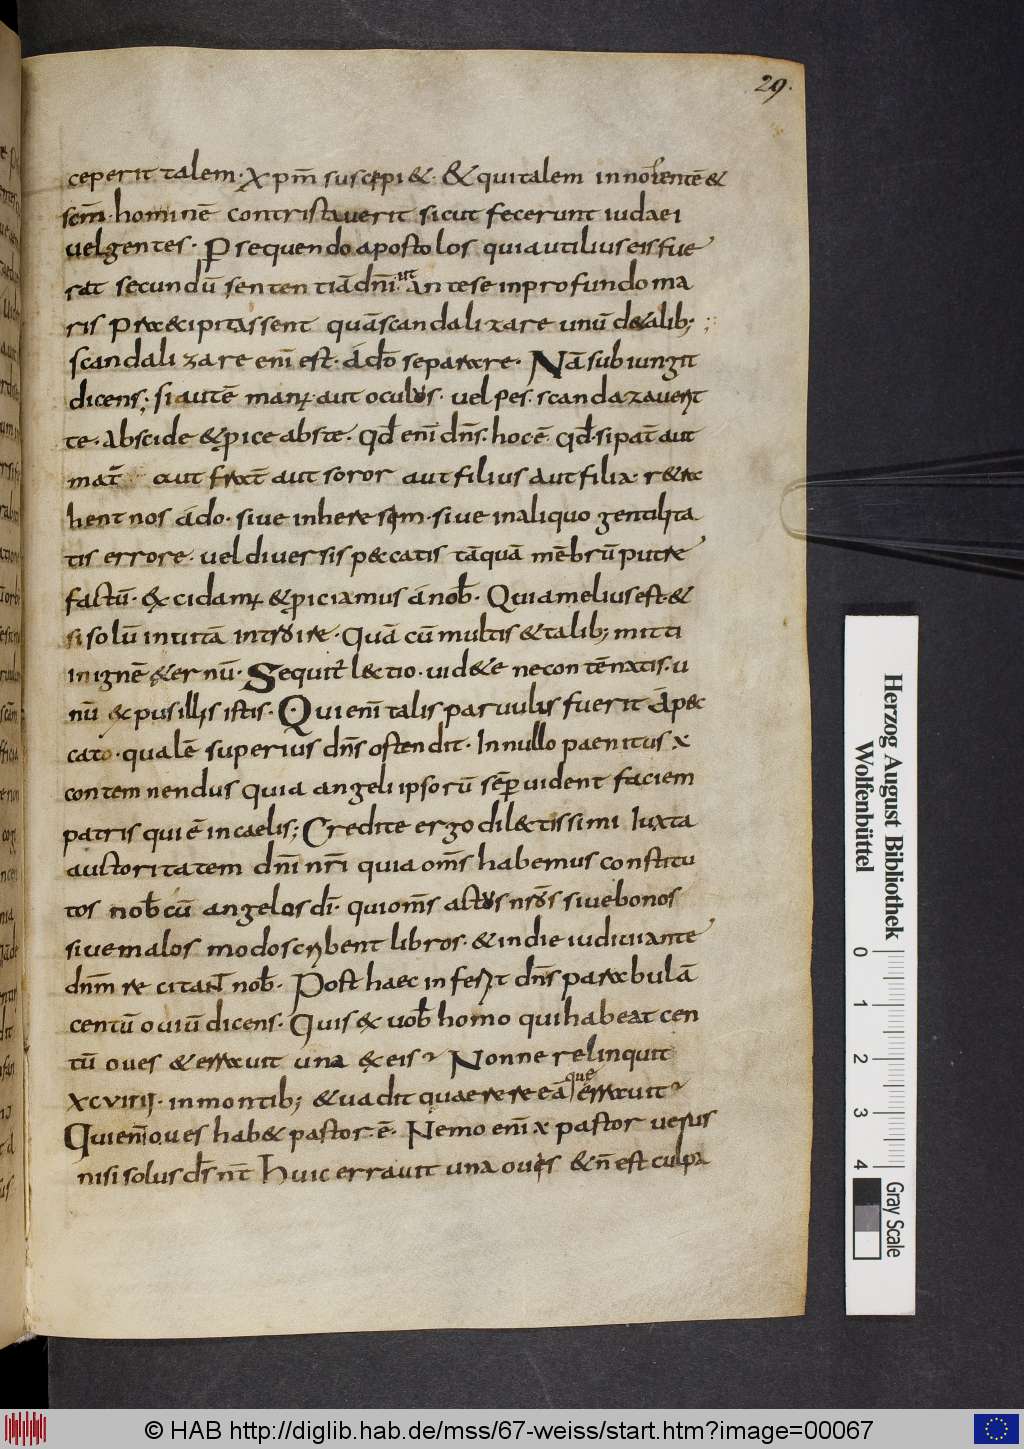 29.
ceperit talem · xp̄m suscepi& · & qui talem innocentē &
sc̄m · hominē contristaverit sicut fecerunt iudaei
vel gentes · P sequendo apostolos quia utilius eis fue
rat̄ secundū sententiā dn̄i · ut ante se in profundo ma
ris praecipitassent quā scandalizare unū de talib;
scandalizare enī est · a dō separare · Nā subiungit
dicens; si autē man; aut oculus · vel pes · scandazaverit
te · Abscide & proice abs te · qđ enī dn̄s · hoc ē qđ · si pat̄ aut
mat̄ aut frat̄ aut soror aut filius aut filia · r&ra
hent nos a do · sive in heresem · sive in aliquo gentilita
tis errore · vel diversis peccatis tāquā mēbrū putre
factū · excidam; & piciamus a nob̄ · Quia melius est &
si solū in vitā introire · Quā cū multis & talib; mitti
in ignē &ernū · Sequit̄ l&tio · vid&e ne contēnatis · u
nū ex pusillis istis · Qui enī talis parvulus fuerit a pec
cato · qualē superius dn̄s ostendit · In nullo paenitus ÷
contemnendus quia angeli ipsorū sēp vident faciem
patris qui ē in caelis; Credite ergo dil&tissimi Iuxta
auctoritatem dn̄i nr̄i quia om̄s habemus constitu
tos nob̄ cū angelos dī · qui om̄s actus nr̄os sive bonos
sive malos modo scribent libros · & in die iudicii ante
dn̄m recitant̄ nob̄ · Post haec infert dn̄s parabulā
centū oviū dicens · Quis ex vob̄ homo qui habeat cen
tū oves & erravit una ex eis Nonne relinquit
xcviiij · in montib; & vadit quaerere eā que erravit
Qui enī oves hab& pastor ē · Nemo enī ÷ pastor verus
nisi solus ds̄ nr̄ Huic erravit una oves & n̄ est culpa
Herzog August Bibliothek
Wolfenbüttel
0 1 2 3 4
Gray Scale
© HAB http://diglib.hab.de/mss/67-weiss/start.htm?image=00067